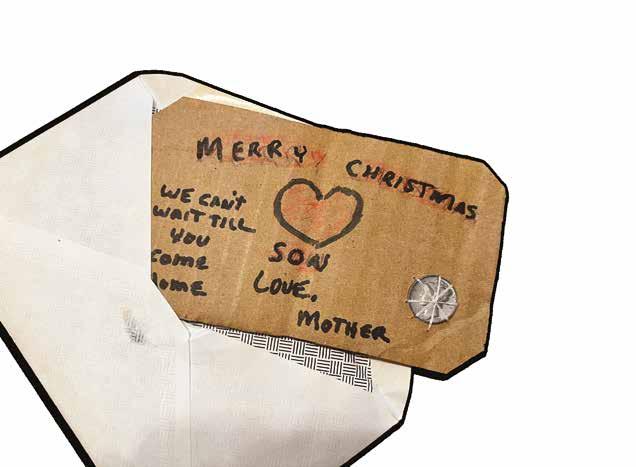 MERRY CHRISTMAS
WE CAN'T
WAIT TILL
YOU
COME
HOME
SON
LOVE,
MOTHER